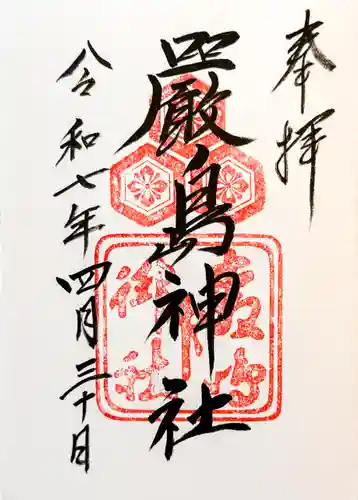 奉拝
嚴島神社
令和七年四月三十日